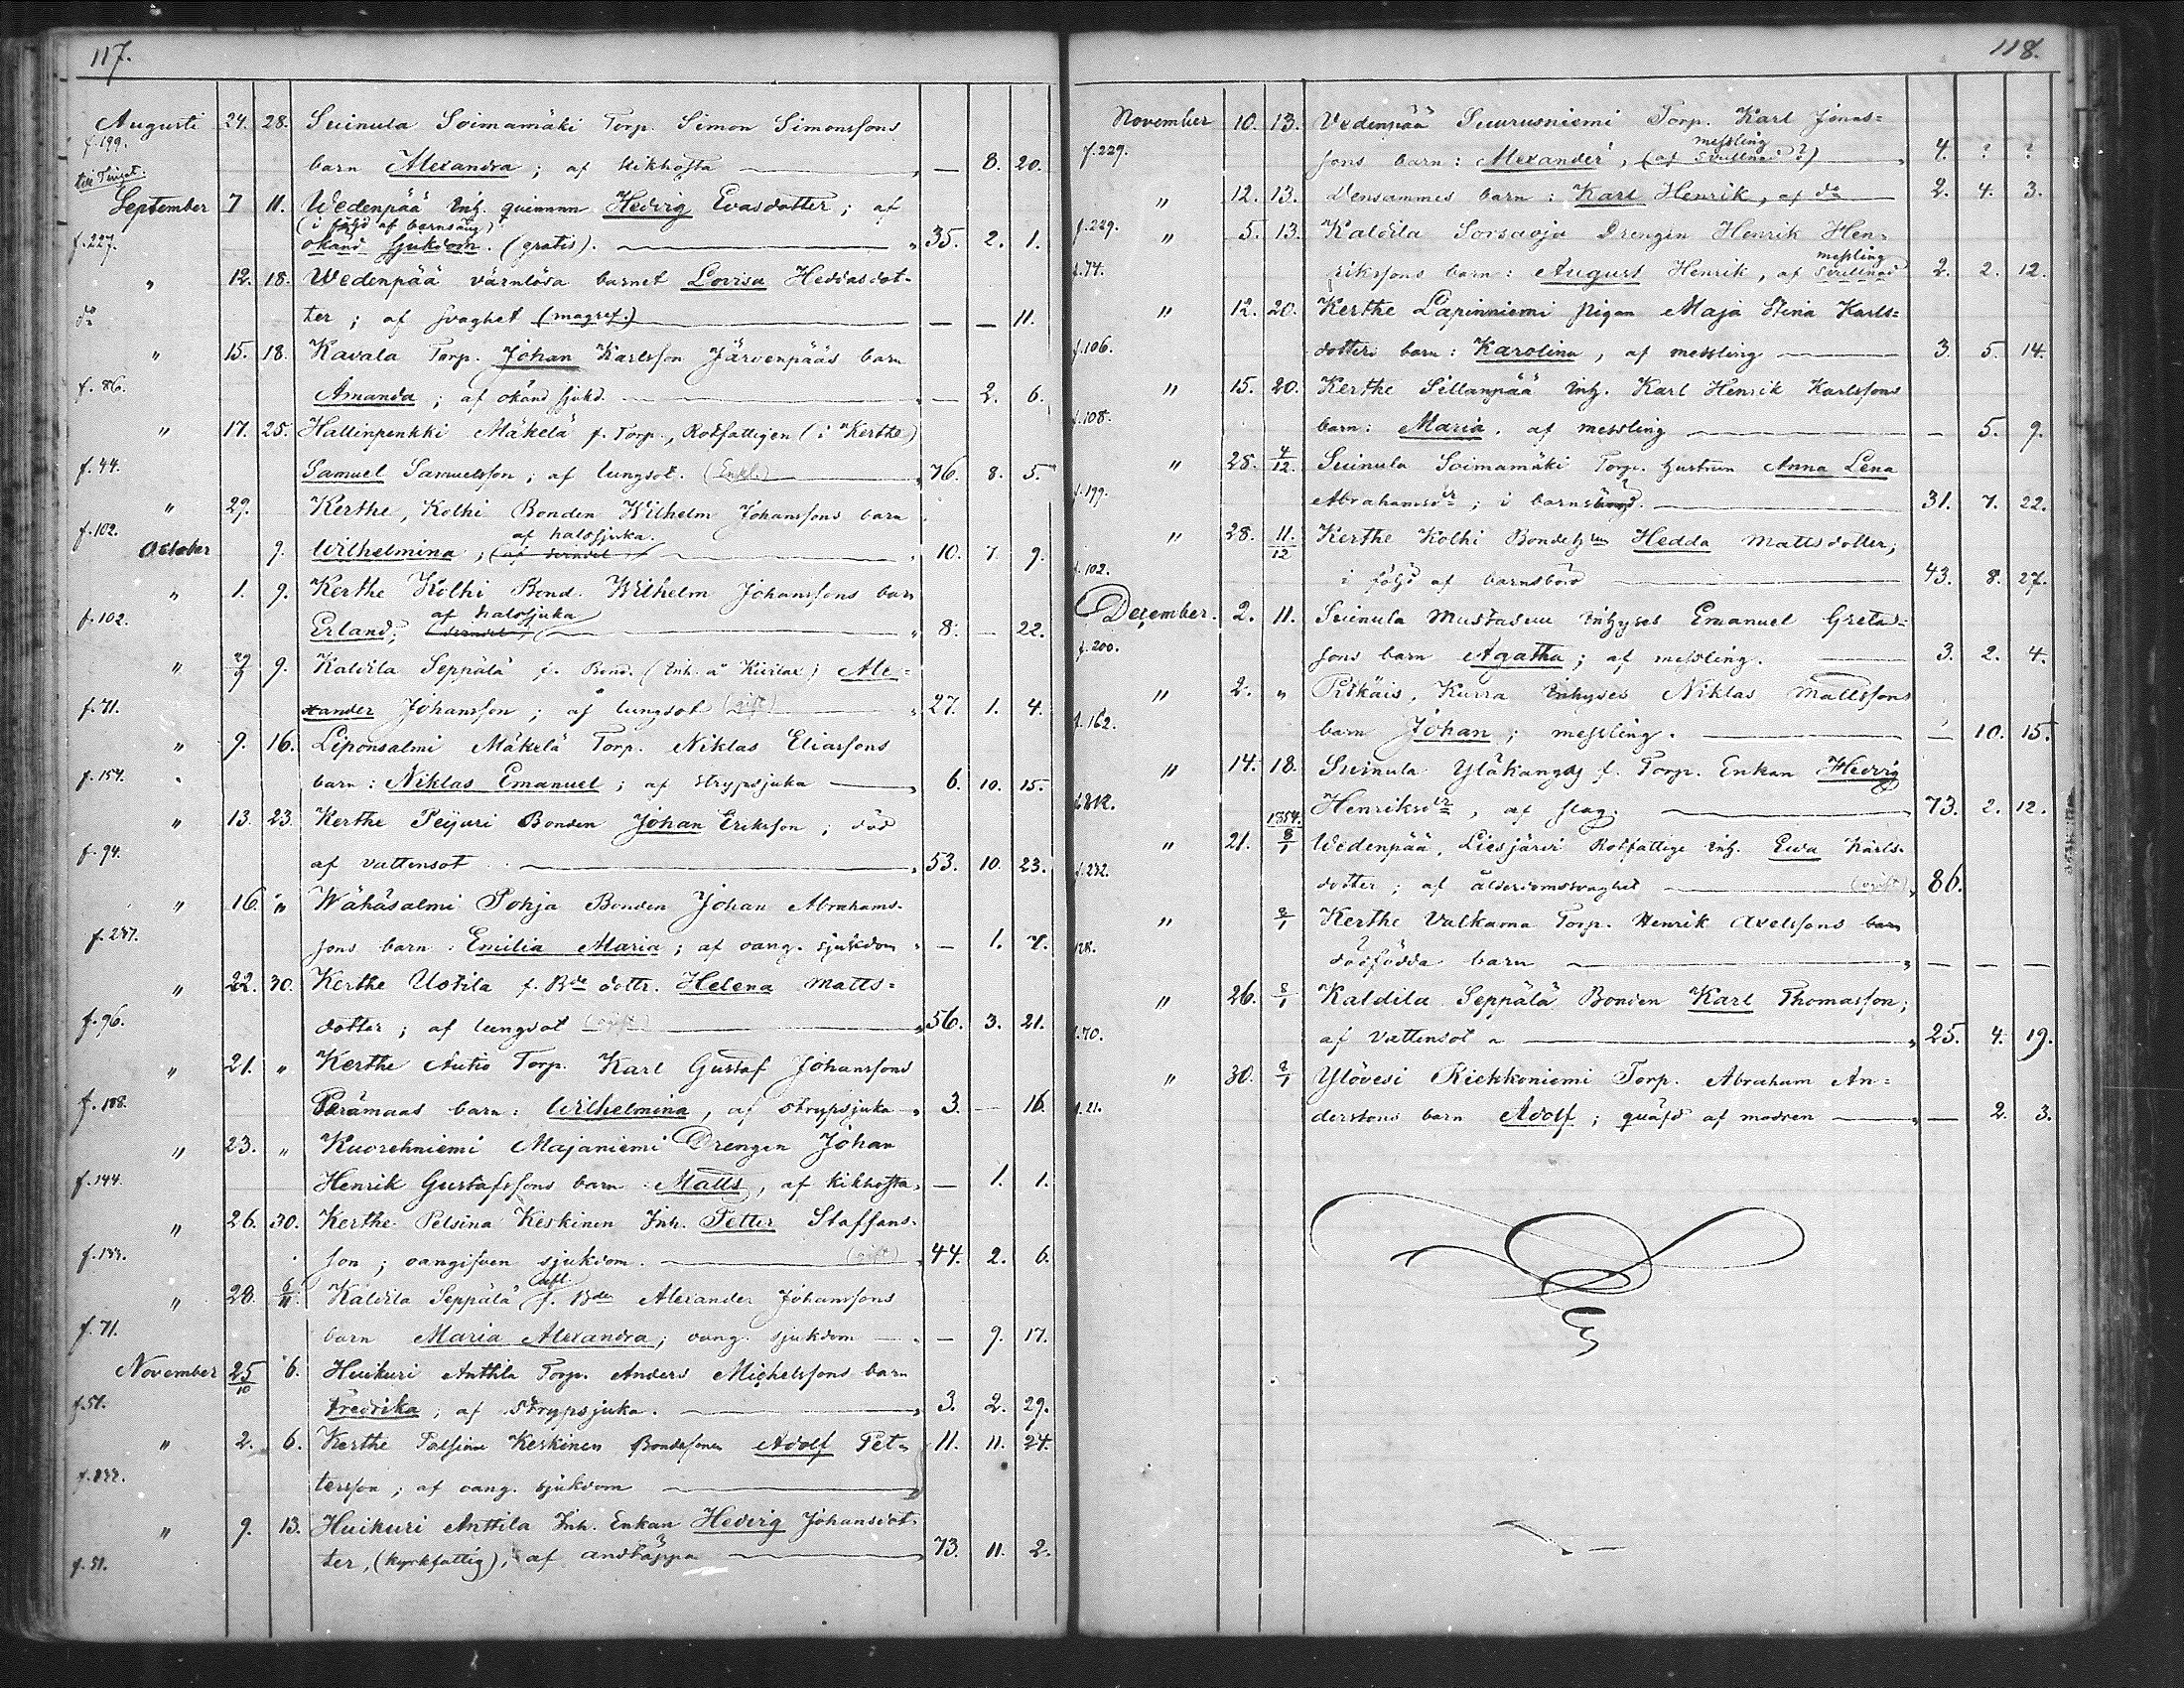 117.
Augusti 24. 28. Suinula Soimamäki Torp. Simon Simonssons
f. 199.
barn Alexandra; af kikhosta — 8. 20.
September 7 11. Wedenpää Inh. quinnan Hedvig Evasdotter; af
(i följd af barnsäng)
f. 227. okänd sjukdom. (gratis). 35. 2. 1.
" 12. 18. Wedenpää värnlösa barnet Lovisa Heddasdot-
do ter; af svaghet (magref.) — — 11.
" 15. 18. Kavala Torp. Johan Karlsson Järvenpääs barn
f. 86. Amanda; af okänd sjukd. — 2. 6.
" 17. 25. Hallinpenkki Mäkelä f. Torp., Rotfattigen (i Kerthe)
f. 44. Samuel Samuelsson; af lungsot. (Enkl.) 76. 8. 5.
" 29. Kerthe, Kolhi Bonden Wilhelm Johanssons barn
f. 102. af halssjuka.
October 9. Wilhelmina, 10. 7. 9.
" 1. 9. Kerthe Kolhi Bond. Wilhelm Johanssons barn
f. 102. af halssjuka
Erland; 8. — 22.
" 29/9 9. Kaldila Seppälä f. Bond. (Inh. å Kivilax) Ale-
f. 71. xander Johansson; af lungsot (gift) 27. 1. 4.
" 9. 16. Liponsalmi Mäkelä Torp. Niklas Eliassons
f. 154. barn: Niklas Emanuel; af strypsjuka 6. 10. 15.
" 13. 23. Kerthe Peijari Bonden Johan Eriksson; död
f. 94. af vattensot 53. 10. 23.
" 16. " Wähäsalmi Pohja Bonden Johan Abrahams-
f. 237. sons barn: Emilia Maria; af oang. sjukdom — 1. 7.
" 22. 30. Kerthe Uotila f. Bde dottr. Helena Matts-
f. 96. dotter; af lungsot (ogift) 56. 3. 21.
" 21. " Kerthe Autio Torp. Karl Gustaf Johanssons
f. 108. Perämaas barn: Wilhelmina, af strypsjuka 3. — 16.
" 23. " Kuorehniemi Majaniemi Drengen Johan
f. 144. Henrik Gustafssons barn Matts, af kikhosta, — 1. 1.
" 26. 30. Kerthe Pelsina Keskinen Inh. Petter Staffans-
f. 133. son; oangifven sjukdom. (gift) 44. 2. 6.
afl.
" 28. 6/11 Kaldila Seppälä f. Bde Alexander Johanssons
f. 71. barn Maria Alexandra; oang. sjukdom — 9. 17.
November 25/10 6. Huikuri Anttila Torp. Anders Michelssons barn
f. 51. Fredrika, af strypsjuka. 3. 2. 29.
" 2. 6. Kerthe Keskinen Bondesonen Adolf Pet- 11. 11. 24.
f. 133. tersson; af oang. sjukdom
" 9. 13. Huikuri Anttila Inh. Enkan Hedvig Johansdot-
f. 51. ter, (kyrkfattig), af andtäppa 73. 11. 2.
118.
November 10. 13. Vedenpää Suurusniemi Torp. Karl Jonas-
messling
f. 229. sons barn: Alexander, (af ?) 4. ? ?
" 12. 13. Densammes barn: Karl Henrik, af do 2. 4. 3.
f. 229.
" 5. 13. Kaldila Sorsavoja Drengen Henrik Hen-
messling
f. 74. rikssons barn: August Henrik, af 2. 2. 12.
" 12. 20. Kerthe Lapinniemi pigan Maja Stina Karls-
f. 106. dotters barn: Karolina, af messling 3. 5. 14.
" 15. 20. Kerthe Sillanpää Inh. Karl Henrik Karlssons
f. 108. barn: Maria, af messling — 5. 9.
" 25. 4/12. Suinula Soimamäki Torp. hustrun Anna Lena
f. 199. Abrahamsdr; i barnsbörd. 31. 7. 22.
" 28. 11./12 Kerthe Kolhi Hedda Mattsdotter;
f. 102. i följd af barnsbörd 43. 8. 27.
December. 2. 11. Suinula Mustasuu Inhyses Emanuel Greta-
f. 200. sons barn Agatha; af messling. 3. 2. 4.
" 2. " Pitkäis, Kurra Inhyses Niklas Mattssons
f. 162. barn Johan; messling. — 10. 15.
" 14. 18. Suinula Yläkangas f. Torp. Enkan Hedvig
Henriksdr, af slag. 73. 2. 12.
1854.
" 21. 8/1 Wedenpää, Liesjärvi Rotfattige Inh. Ewa Karls-
f. 232. dotter; af ålderdomssvaghet (ogift) 86.
" 8/1 Kerthe Valkama Torp. Henrik Axelssons barn
dödfödda barn — — —
" 26. 8/1 Kaldila Seppälä Bonden Karl Thomasson;
f. 70. af vattensot 25. 4. 19.
" 30. 8/1 Ylövesi Riekkoniemi Torp. Abraham An-
f. 21. derssons barn Adolf; quäfd af modren — 2. 3.